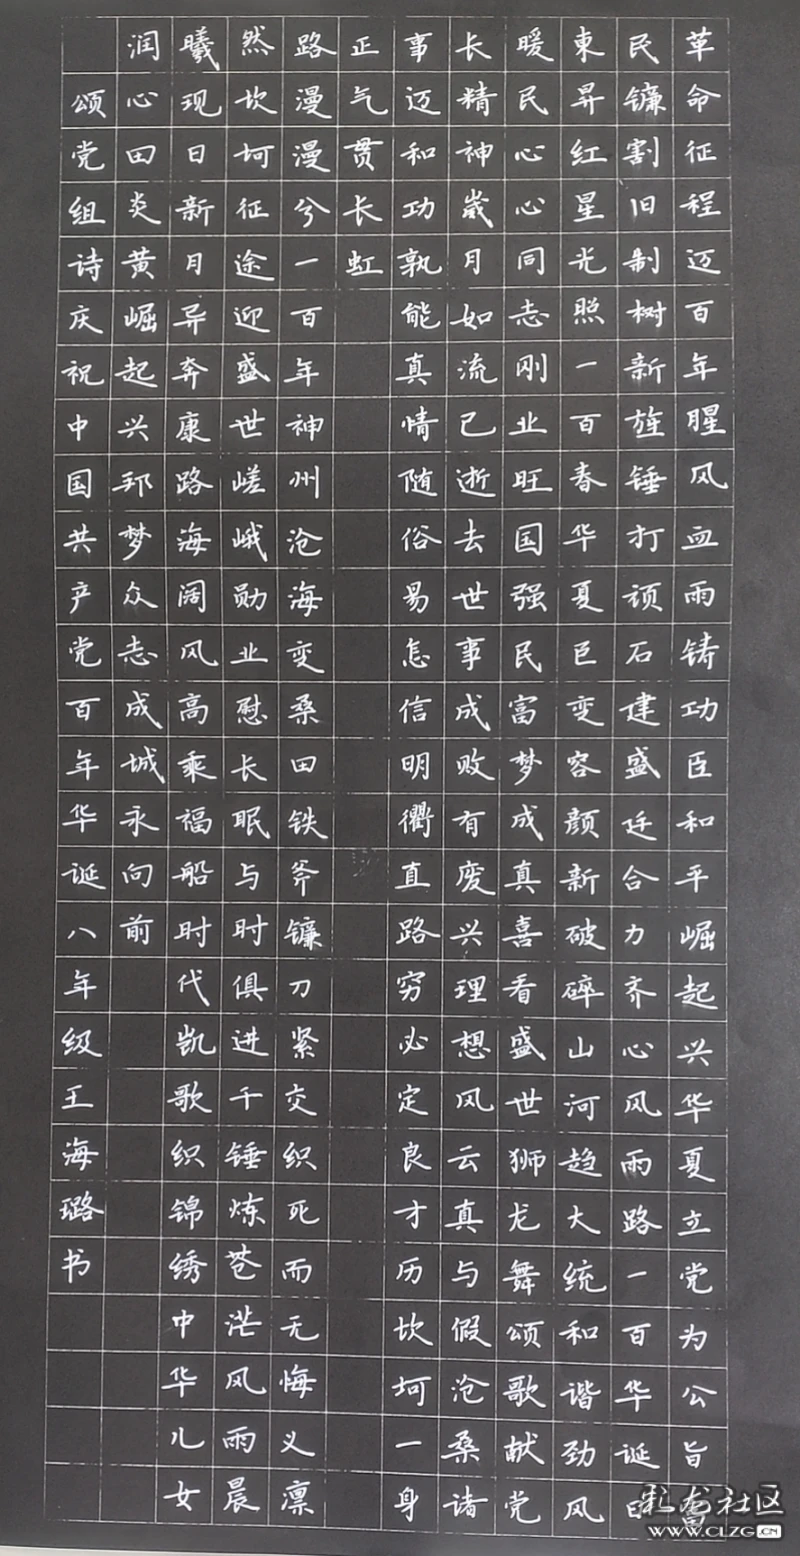 革命征程迈百年腥风血雨铸功臣和平崛起兴华夏立党为公旨富
民镰割旧制树新旌锤打顽石建盛廷合力齐心风雨路一百华诞日
東昇红星光照一百春华夏巨变容颜新破碎山河趋大统和谐劲风
暖民心心同志刚业旺国强民富梦成真喜看盛世狮龙舞颂歌献党
长精神嵗月如流已逝去世事成败有废兴理想风云真与假沧桑诸
事迈和功孰能真情随俗易怎信明衢直路穷必定良才历坎坷一身
正气贯长虹
路漫漫兮一百年神州沧海变桑田铁斧镰刀紧交织死而无悔义凛
然坎坷征途迎盛世嵯峨勋业慰长眠与时俱进千锤炼苍茫风雨晨
曦现日新月异奔康路海阔风高乘福船时代凯歌织锦绣中华儿女
润心田炎黄崛起兴邦梦众志成城永向前
颂党组诗庆祝中国共产党百年华诞八年级王海璐书
龙社区
WWW.CLZG.CN